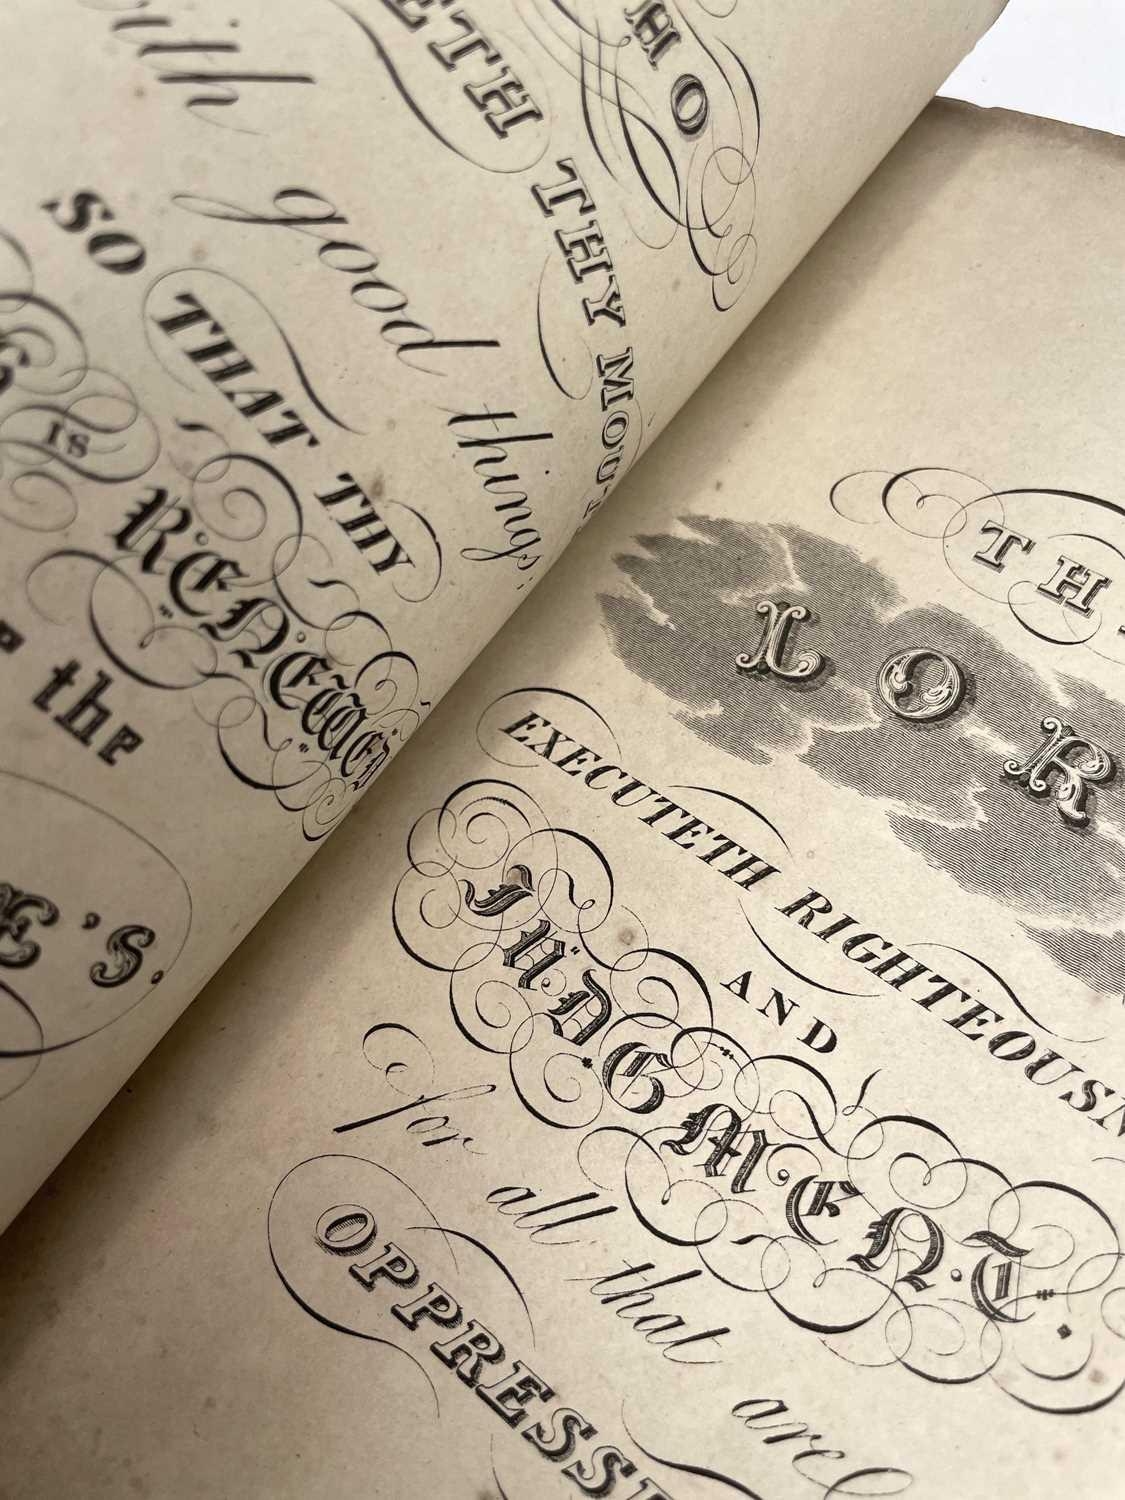 HO
ETH THY MOUT
with good things
SO THAT THY
IS RENEWED
the
E'S.
TH
LOR
EXECUTETH RIGHTEOUSN
AND
JUDGMENT.
for all that are
OPPRESSE